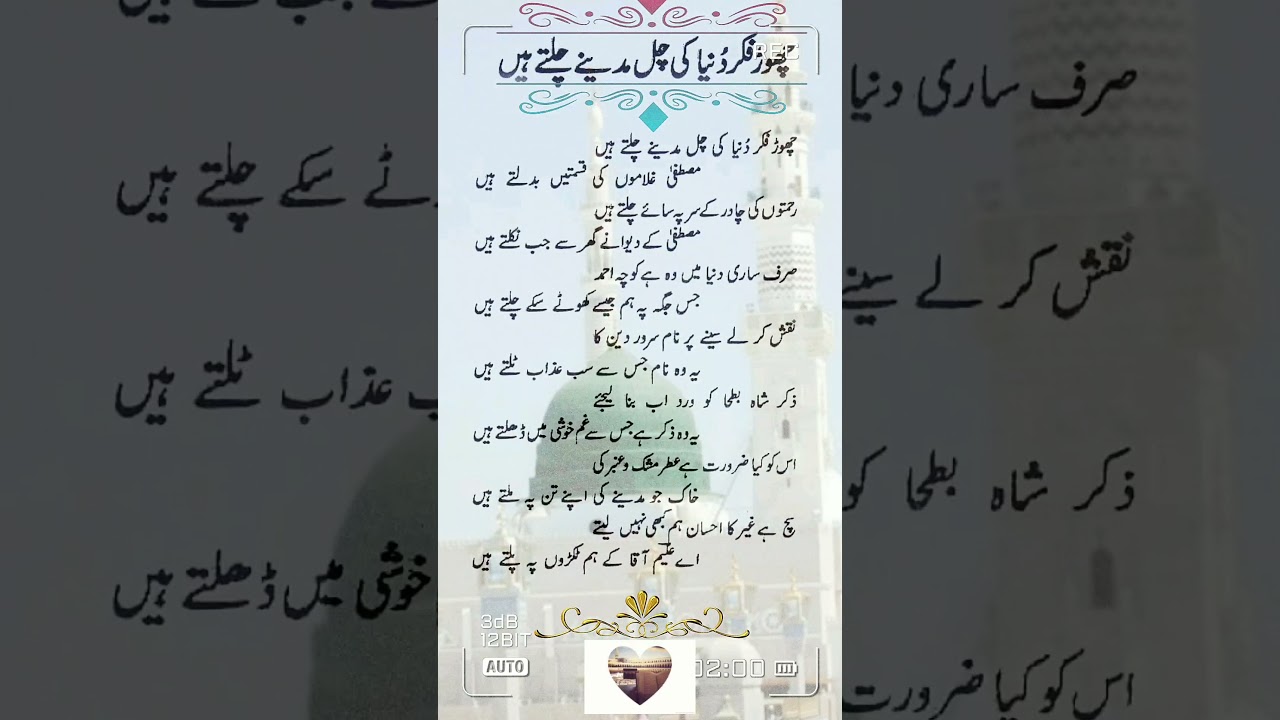 چھوڑ فکر دُنیا کی چل مدینے چلتے ہیں
چھوڑ فکر دُنیا کی چل مدینے چلتے ہیں
مصطفیٰ غلاموں کی قسمتیں بدلتے ہیں
رحمتوں کی چادر کے سر پہ سائے چلتے ہیں
مصطفیٰ کے دیوانے گھر سے جب نکلتے ہیں
صرف ساری دنیا میں وہ ہے کوچہ احمد
جس جگہ پہ ہم جیسے کھوٹے سکے چلتے ہیں
نقش کر لے سینے پر نام سرور دین کا
یہ وہ نام جس سے سب عذاب ٹلتے ہیں
ذکر شاہ بطحا کو ورد اب بنا لیجئے
یہ وہ ذکر ہے جس سے غم خوشی میں ڈھلتے ہیں
اس کو کیا ضرورت ہے عطر مشک و عنبر کی
خاک جو مدینے کی اپنے تن پہ ملتے ہیں
سچ ہے غیر کا احسان ہم کبھی نہیں لیتے
اے علیم آقا کے ہم ٹکڑوں پہ پلتے ہیں
REC
3dB
12BIT
AUTO
02:00
صرف ساری دنیا
ٹے سکے چلتے ہیں
نقش کر لے سینے
ب عذاب ٹلتے ہیں
ذکر شاہ بطحا کو
خوشی میں ڈھلتے ہیں
اس کو کیا ضرورت